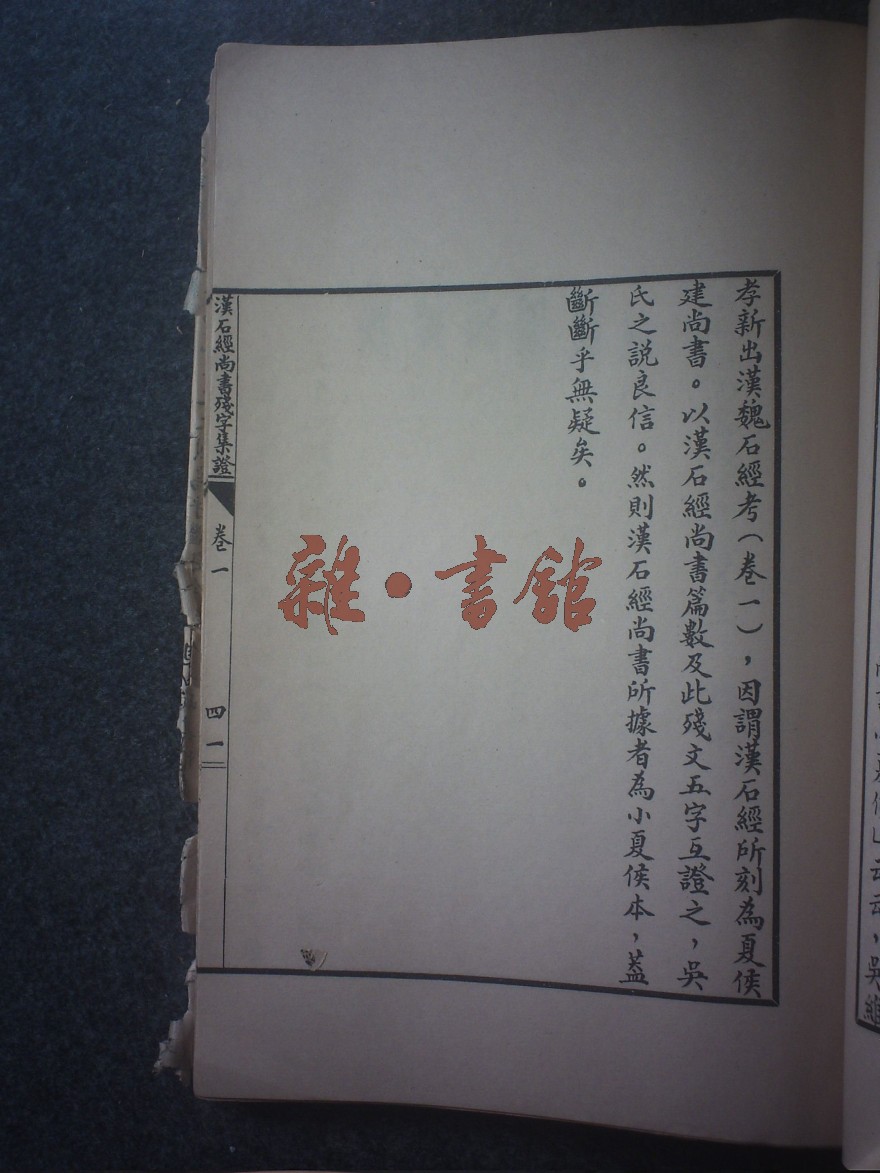 孝新出漢魏石經考（卷一），因謂漢石經所刻為夏侯
建尚書。以漢石經尚書篇數及此殘文五字互證之，吳
氏之説良信。然則漢石經尚書所據者為小夏侯本，蓋
斷斷乎無疑矣。
漢石經尚書殘字集證
卷一
四一
雜·書館